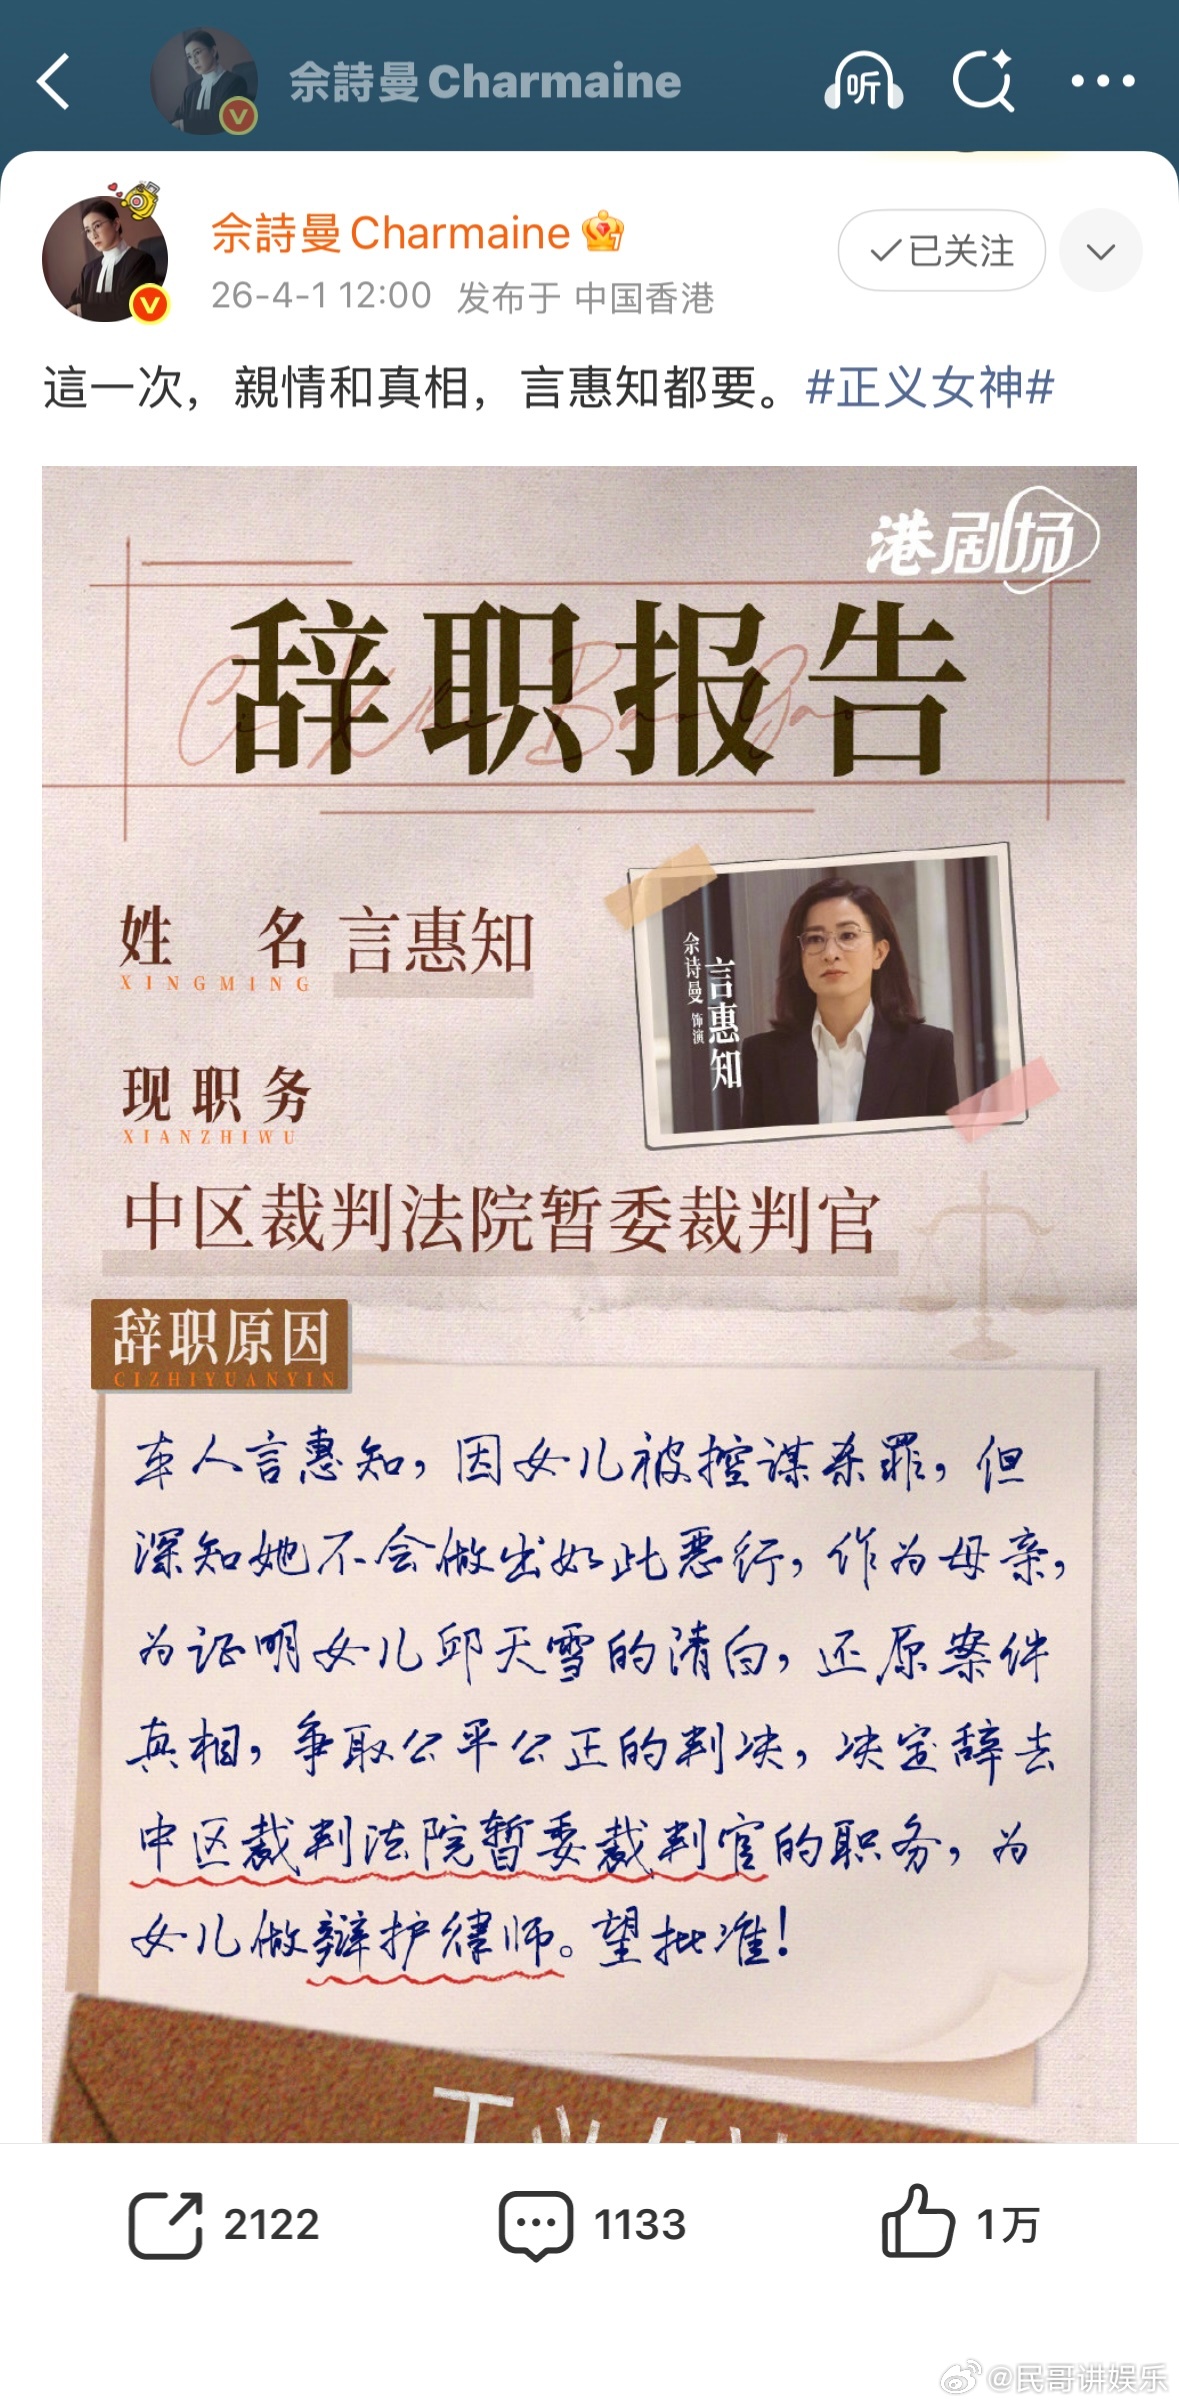 佘詩曼Charmaine
听
佘詩曼Charmaine
已关注
26-4-1 12:00 发布于 中国香港
這一次，親情和真相，言惠知都要。#正义女神#
港剧场
辞职报告
姓 名 言惠知
XINGMING
佘诗曼 饰演
言惠知
现职务
XIANZHIWU
中区裁判法院暂委裁判官
辞职原因
CIZHIYUANYIN
本人言惠知，因女儿被控谋杀罪，但
深知她不会做出如此恶行，作为母亲，
为证明女儿邱天雪的清白，还原案件
真相，争取公平公正的判决，决定辞去
中区裁判法院暂委裁判官的职务，为
女儿做辩护律师。望批准！
2122
1133
1万
@民哥讲娱乐